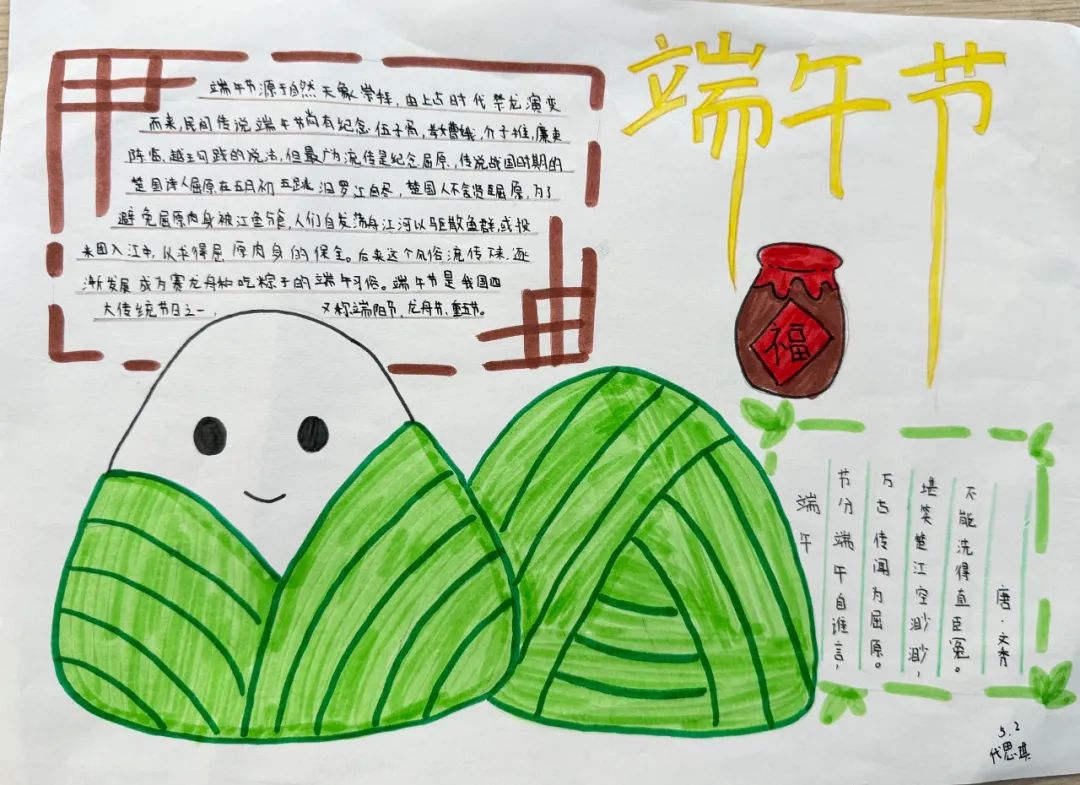 端午节
端午节源于自然天象崇拜，由上古时代祭龙演变
而来，民间传说端午节尚有纪念伍子胥，曹娥，介子推，廉吏
陈临、越王勾践的说法，但最广为流传是纪念屈原，传说战国时期的
楚国诗人屈原在五月初五跳汨罗江自尽，楚国人不舍贤臣屈原，为了
避免屈原肉身被江鱼分食，人们自发荡舟江河以驱散鱼群，或投
米团入江中，以求得屈原肉身的保全。后来这个风俗流传下来，逐
渐发展成为赛龙舟和吃粽子的端午习俗。端午节是我国四
大传统节日之一，又称端阳节，龙舟节、重五节。
福
端午
节分端午自谁言，
万古传闻为屈原。
堪笑楚江空渺渺，
不能洗得直臣冤。
唐·文秀
5.2
代思琪